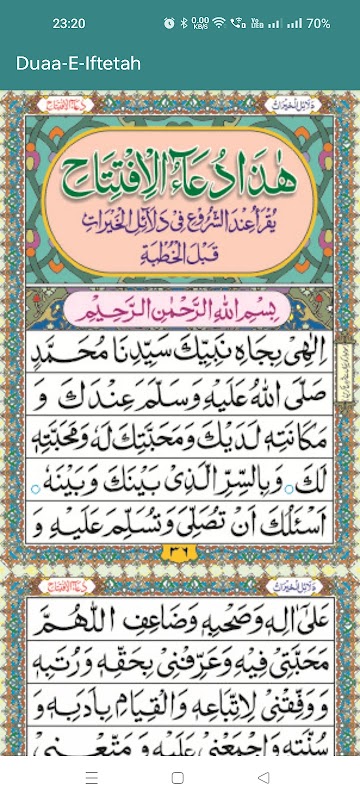 23:20
0.00 KB/S
70%
Duaa-E-Iftetah
دعاء الافتتاح
دلائل الخیرات
هٰذَا دُعَآءُ الْاِفْتِتَاحِ
يُقْرَأُ عِنْدَ الشُّرُوْعِ فِیْ دَلَآئِلِ الْخَيْرَاتِ
قَبْلَ الْخُطْبَةِ
بِسْمِ اللهِ الرَّحْمٰنِ الرَّحِيْمِ
اِلٰهِیْ بِجَاهِ نَبِيِّكَ سَيِّدِنَا مُحَمَّدٍ
صَلَّی اللهُ عَلَيْهِ وَسَلَّمَ عِنْدَكَ وَ
مَكَانَتِهٖ لَدَيْكَ وَمَحَبَّتِكَ لَهٗ وَمَحَبَّتِهٖ
لَكَ وَبِالسِّرِّ الَّذِیْ بَيْنَكَ وَبَيْنَهٗ
اَسْئَلُكَ اَنْ تُصَلِّیَ وَتُسَلِّمَ عَلَيْهِ وَ
٣٦
دعاء الافتتاح
دلائل الخیرات
عَلٰٓی اٰلِهٖ وَصَحْبِهٖ وَضَاعِفِ اللّٰهُمَّ
مَحَبَّتِیْ فِيْهِ وَعَرِّفْنِیْ بِحَقِّهٖ وَرُتَبِهٖ
وَوَفِّقْنِیْ لِاتِّبَاعِهٖ وَالْقِيَامِ بِاَدَبِهٖ وَ
سُنَّتِهٖ وَاجْمَعْنِیْ عَلَيْهِ وَ مَتِّعْنِیْ